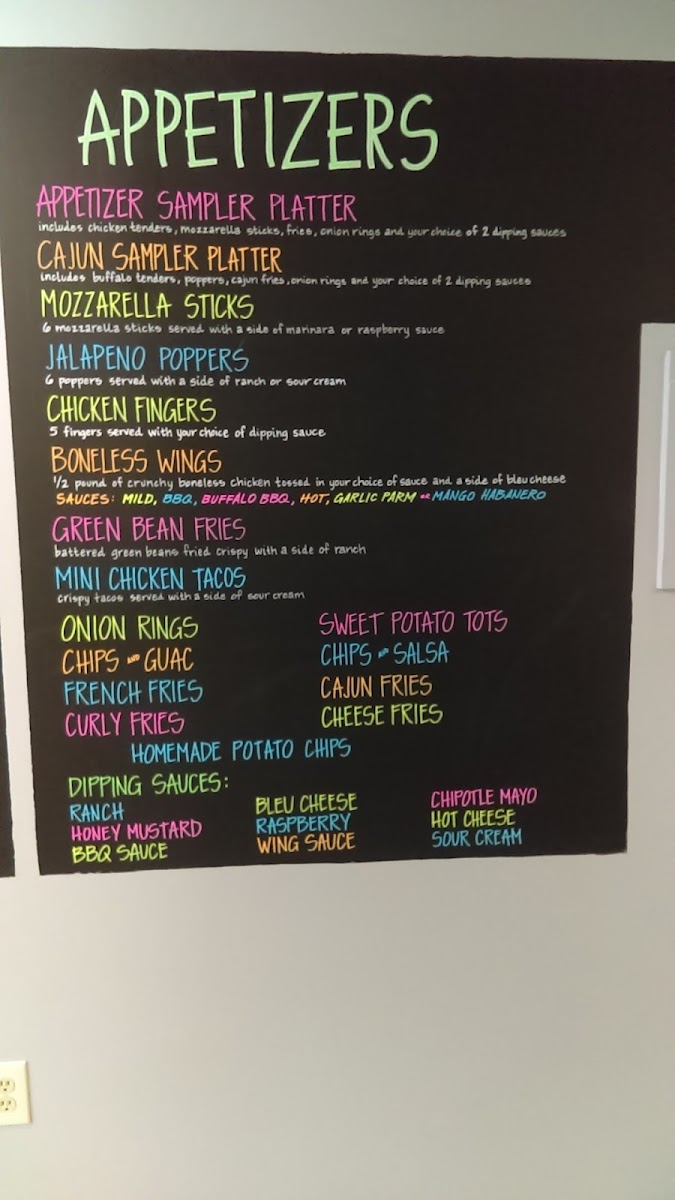 APPETIZERS
APPETIZER SAMPLER PLATTER
includes chicken tenders, mozzarella sticks, fries, onion rings and your choice of 2 dipping sauces
CAJUN SAMPLER PLATTER
includes buffalo tenders, poppers, cajun fries, onion rings and your choice of 2 dipping sauces
MOZZARELLA STICKS
6 mozzarella sticks served with a side of marinara or raspberry sauce
JALAPENO POPPERS
6 poppers served with a side of ranch or sour cream
CHICKEN FINGERS
5 fingers served with your choice of dipping sauce
BONELESS WINGS
1/2 pound of crunchy boneless chicken tossed in your choice of sauce and a side of bleu cheese
SAUCES: MILD, BBQ, BUFFALO BBQ, HOT, GARLIC PARM OR MANGO HABANERO
GREEN BEAN FRIES
battered green beans fried crispy with a side of ranch
MINI CHICKEN TACOS
crispy tacos served with a side of sour cream
ONION RINGS
SWEET POTATO TOTS
CHIPS AND GUAC
CHIPS AND SALSA
FRENCH FRIES
CAJUN FRIES
CURLY FRIES
CHEESE FRIES
HOMEMADE POTATO CHIPS
DIPPING SAUCES:
RANCH
HONEY MUSTARD
BBQ SAUCE
BLEU CHEESE
RASPBERRY
WING SAUCE
CHIPOTLE MAYO
HOT CHEESE
SOUR CREAM